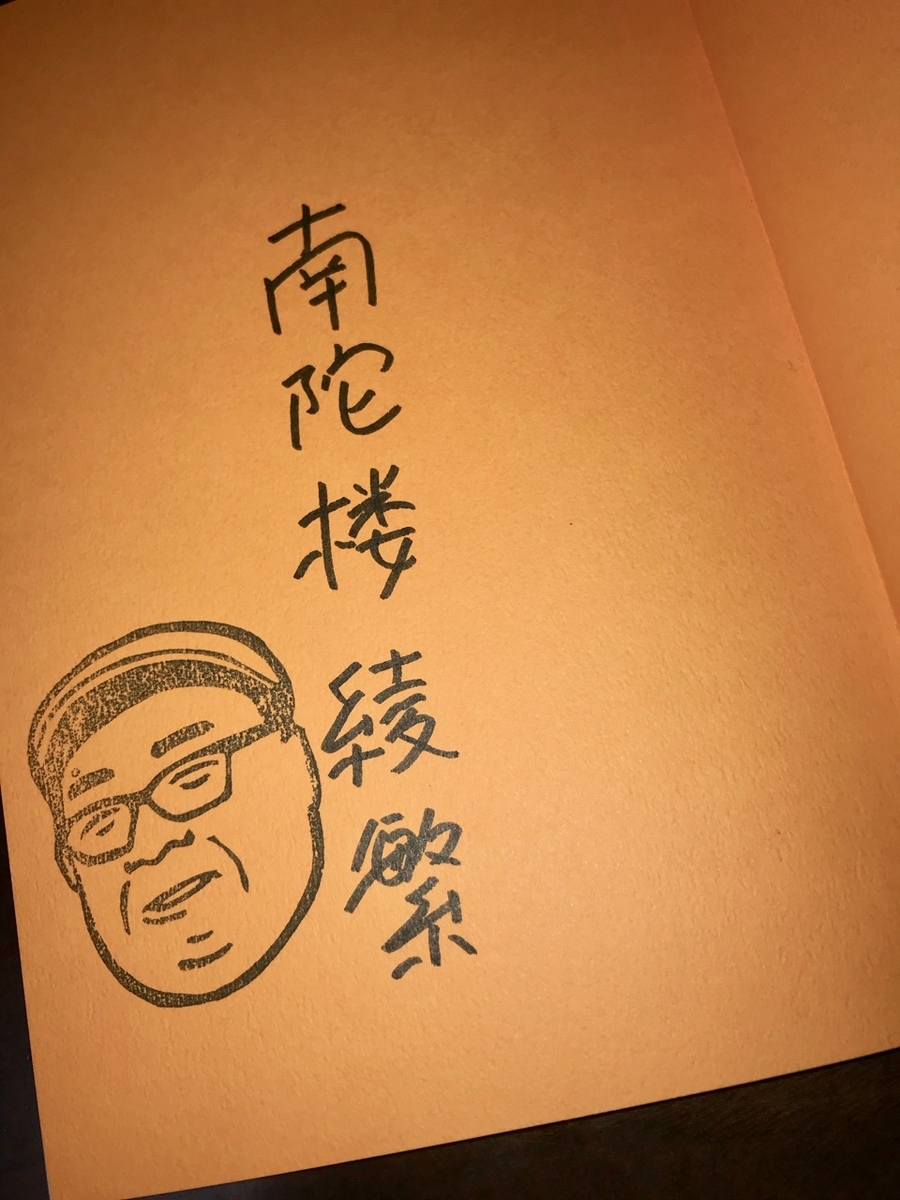 南陀楼綾繁